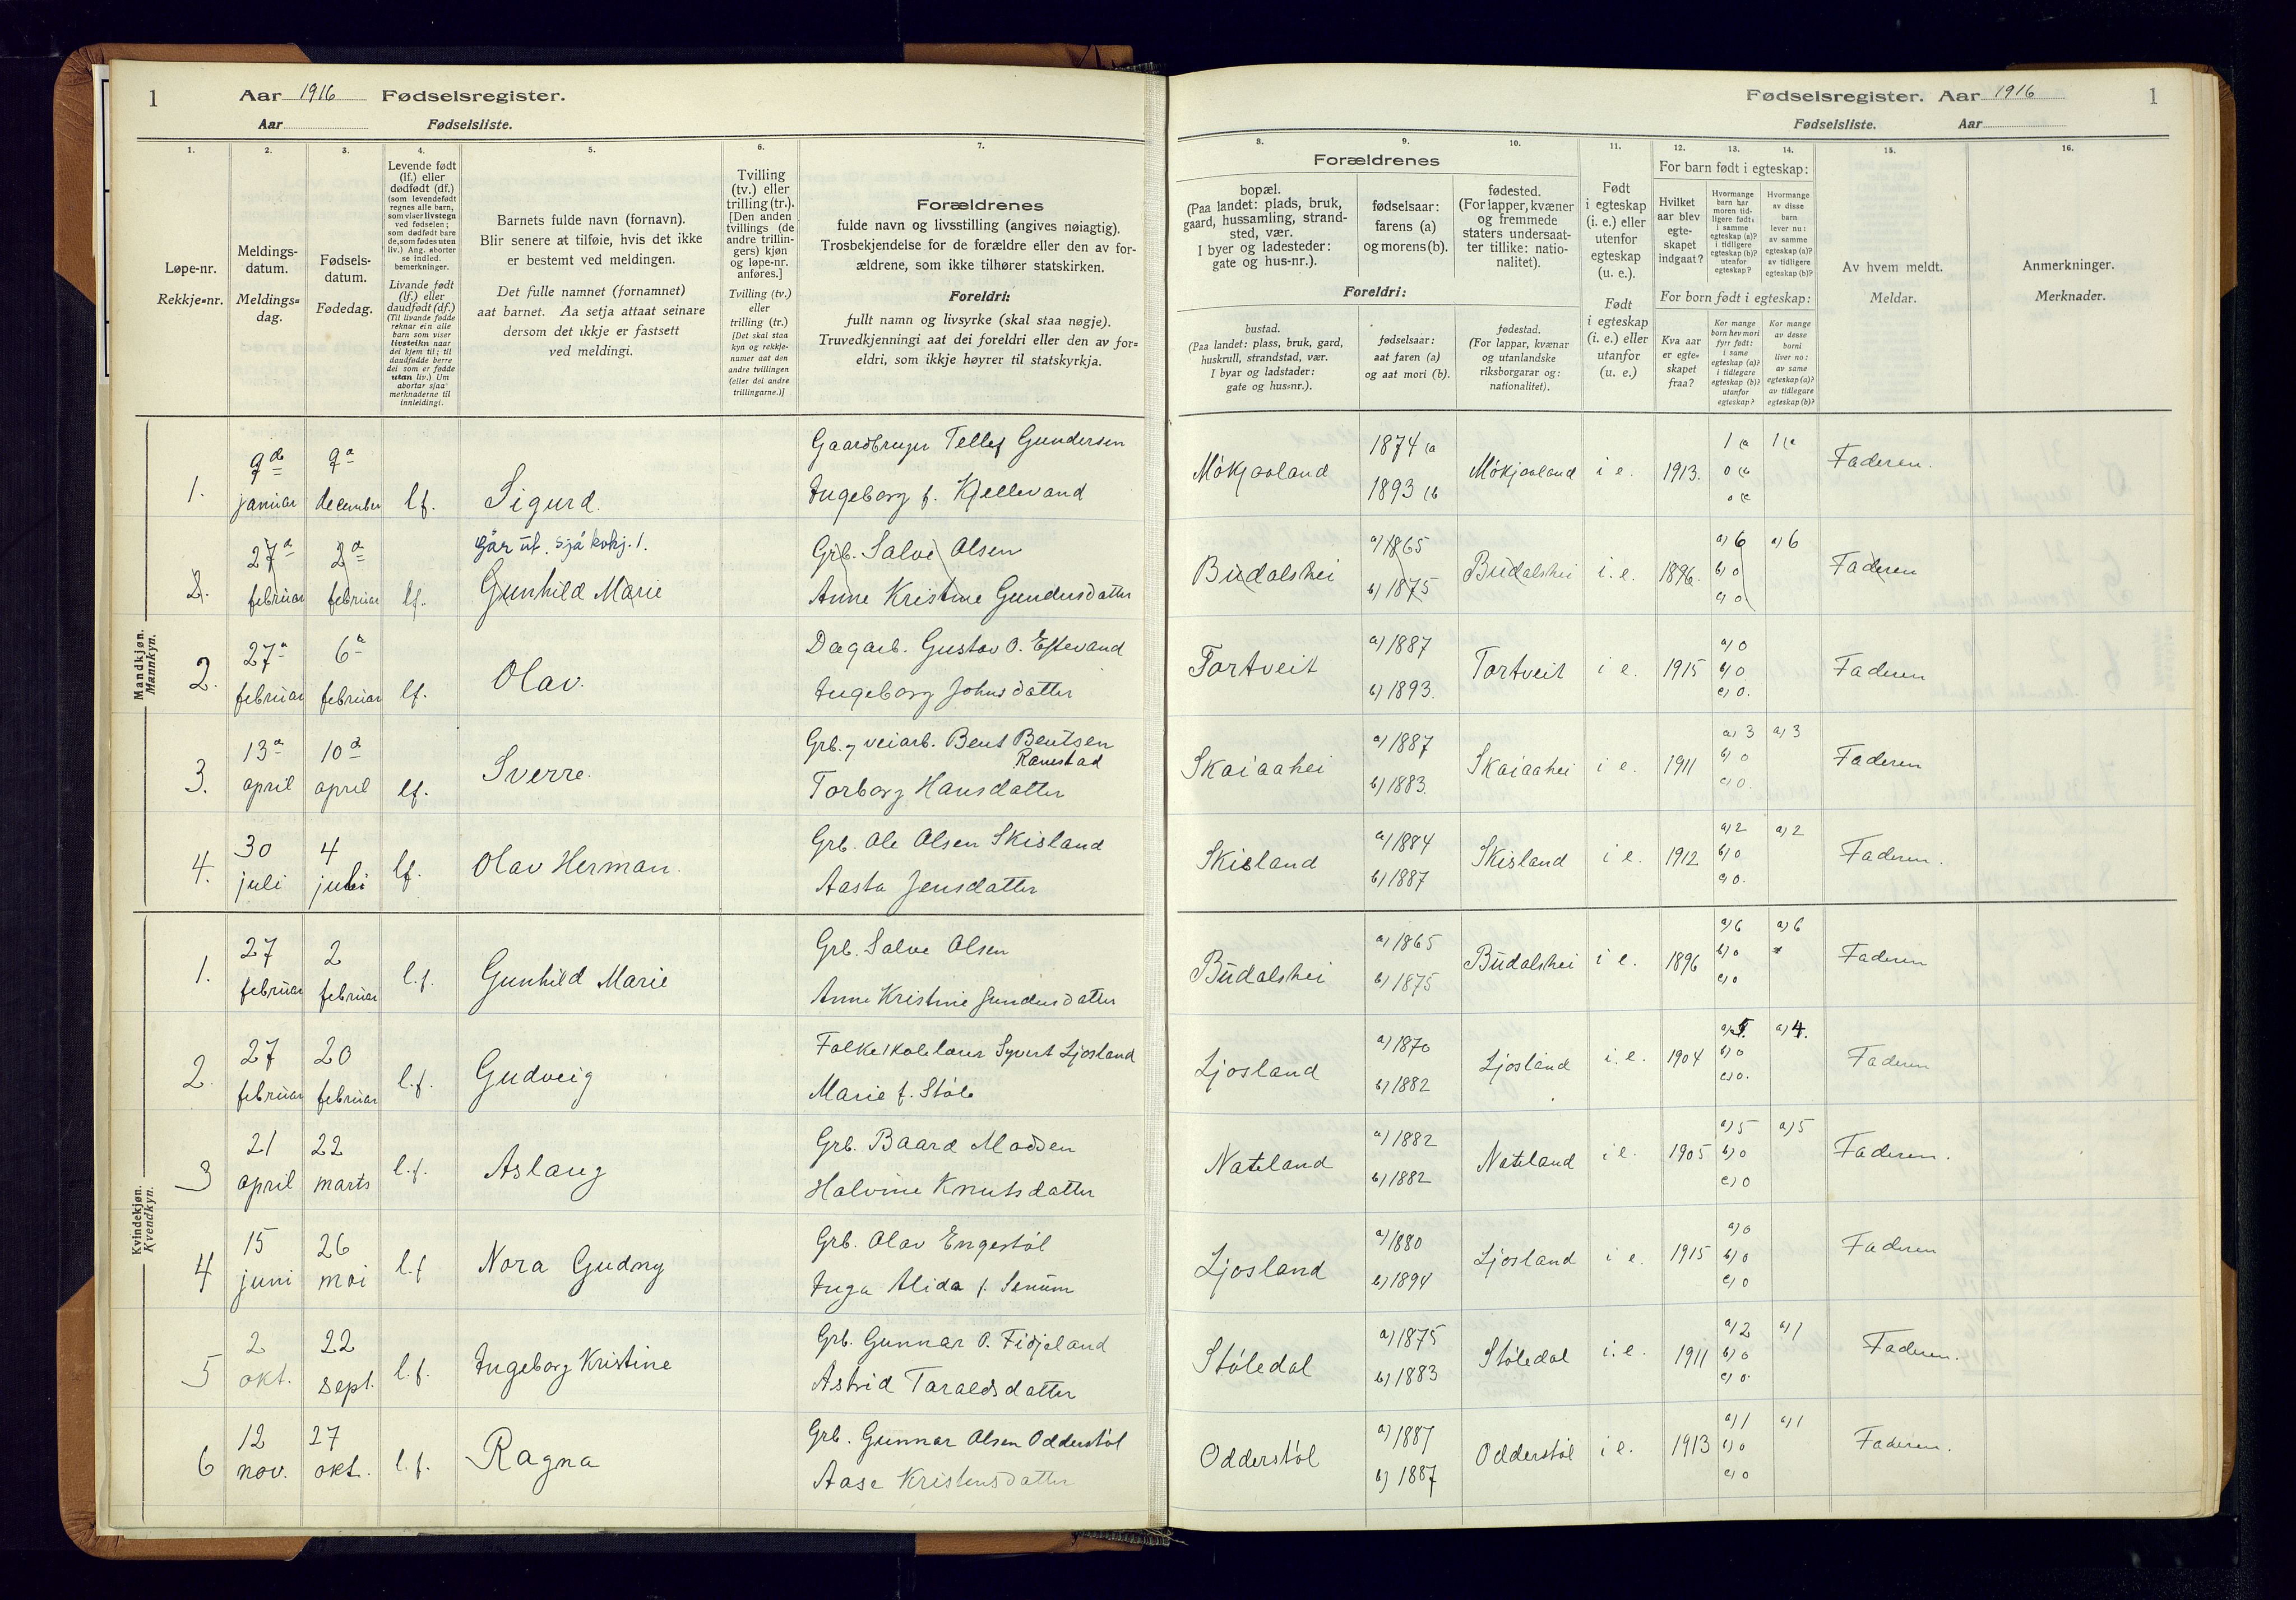 1 Aar 1916 Fødselsregister.
Aar Fødselsliste.
Fødselsregister. Aar 1916 1
Fødselsliste. Aar
1. 2. 3. 4. 5. 6. 7.
Løpe-nr.
Rekkje-nr.
Meldings-
datum.
Meldings-
dag.
Fødsels-
datum.
Fødedag.
Levende født
(lf.) eller
dødfødt (df.)
(som levendefødt
regnes alle barn,
som viser livstegn
ved fødselen;
som dødfødt bare
de, som fødes uten
liv.) Ang. aborter
se indled.
bemerkninger.
Livande født
(lf.) eller
daudfødt (df.)
(Til livande fødde
reknar ein alle
barn som viser
livsteikn naar
dei kjem til; til
daudfødde berre
dei som er fødde
utan liv.) Um
abortar sjaa
merknaderne til
innleidingi.
Barnets fulde navn (fornavn).
Blir senere at tilføie, hvis det ikke
er bestemt ved meldingen.
Det fulle namnet (fornamnet)
aat barnet. Aa setja attaat seinare
dersom det ikkje er fastsett
ved meldingi.
Tvilling
(tv.) eller
trilling (tr.).
[Den anden
tvillings (de
andre trillin-
gers) kjøn
og løpe-nr.
anføres.]
Tvilling (tv.)
eller
trilling (tr.)
[Det skal staa
kyn og rekkje-
numer aat den
andre tvillingen
(eller dei andre
trillingarne.)]
Forældrenes
fulde navn og livsstilling (angives nøiagtig).
Trosbekjendelse for de forældre eller den av for-
ældrene, som ikke tilhører statskirken.
Foreldri:
fullt namn og livsyrke (skal staa nøgje).
Truvedkjenningi aat dei foreldri eller den av for-
eldri, som ikkje høyrer til statskyrkja.
8. 9. 10. 11. 12. 13. 14. 15. 16.
Forældrenes
bopæl.
(Paa landet: plads, bruk,
gaard, hussamling, strand-
sted, vær.
I byer og ladesteder:
gate og hus-nr.).
fødselsaar:
farens (a)
og morens (b).
fødested.
(For lapper, kvæner
og fremmede
staters undersaat-
ter tillike: natio-
nalitet).
Foreldri:
bustad.
(Paa landet: plass, bruk, gard,
huskrull, strandstad, vær.
I byar og ladstader:
gate og hus-nr.).
fødselsaar:
aat faren (a)
og aat mori (b).
fødestad.
(For lappar, kvænar
og utanlandske
riksborgarar og:
nationalitet).
Født
i egteskap
(i. e.) eller
utenfor
egteskap
(u. e.).
Født
i egteskap
(i. e.) eller
utanfor
(u. e.)
For barn født i egteskap:
Hvilket
aar blev
egte-
skapet
indgaat?
Hvormange
barn har
moren tid-
ligere født:
i samme
egteskap (a)?
i tidligere
egteskap (b)?
utenfor
egteskap?
Hvormange
av disse
barn
lever nu:
av samme
egteskap (a)?
av tidligere
egteskap (b)?
For born født i egteskap:
Kva aar
er egte-
skapet
fraa?
Kor mange
born hev mori
fyrr født:
i same
egteskap (a)?
i tidlegare
egteskap (b)?
utanfor
egteskap?
Kor mange
av desse
borni
liver no:
av same
egteskap (a)?
av tidlegare
egteskap (b)?
Av hvem meldt.
Meldar.
Anmerkninger.
Merknader.
Mandkjøn.
Mannkyn.
1. 9de januar 9a december lf. Sigurd. Gaardbruger Tellef Gundersen
Ingeborg f. Kjellevand
Mökjaaland 1874 (a 1893 (b Mökjaaland i e. 1913. 1 (a 0 (b 0 (c 1 (a Faderen.
går ut. sjå kvkj. 1.
2. 27a februar 2a februar lf. Gunhild Marie Grb. Salve Olsen
Anne Kristine Gundersdatter
Budalshei a) 1865 b) 1875 Budalshei i. e. 1896. a) 6 b) 0 c) 0 a) 6 Faderen
2. 27a februar 6a februar lf. Olav. Dagarb. Gustav O. Eftevand
Ingeborg Johnsdatter
Tortveit a) 1887 b) 1893. Tortveit i e. 1915 a) 0 b) 0 c) 0. Faderen
3. 13a april 10a april lf. Sverre. Grb. og veiarb. Bent Bentsen
Ramstad
Torborg Hansdatter
Skaiaahei a) 1887 b) 1883. Skaiaahei i e. 1911 a) 3 b) 0 c) 0. a) 3 Faderen
4. 30 juli 4 juli lf. Olav Herman. Grb. Ole Olsen Skisland
Aasta Jensdatter
Skisland a) 1884 b) 1887 Skisland i e. 1912 a) 2 b) 0 c) 0. a) 2 Faderen.
Kvindekjøn.
Kvendkyn.
1. 27 februar 2 februar l.f. Gunhild Marie Grb. Salve Olsen
Anne Kristine Gundersdatter
Budalshei a) 1865 b) 1875 Budalshei i e. 1896 a) 6 b) 0 c) 0 a) 6 Faderen
2. 27 februar 20 februar l.f. Gudveig Folkeskolelærer Syvert Ljosland
Marie f. Støle
Ljosland a) 1870 b) 1882 Ljosland i. e. 1904 a) 5. b) 0 c) 0. a) 4. Faderen
3 21 april 22 marts l.f. Aslaug Grb. Baard Madsen
Halvine Knutsdatter
Nateland a) 1882 b) 1882 Nateland i e. 1905 a) 5 b) 0 c) 0 a) 5 Faderen.
4 15 juni 26 mai l.f. Nora Gudny Grb. Olav Engestøl
Inga Alida f. Senum
Ljosland a) 1880 b) 1894 Ljosland i e. 1915 a) 0 b) 0 c) 0 Faderen
5 2 okt. 22 sept. l.f. Ingeborg Kristine Grb. Gunnar O. Fidjeland
Astrid Taraldsdatter
Støledal a) 1875 b) 1883 Støledal i. e. 1911 a) 2 b) 0 c) 0 a) 1 Faderen.
6 12 nov. 27 okt. l.f. Ragna Grb. Gunnar Olsen Odderstøl
Aase Kristensdatter
Odderstøl a) 1887 b) 1887 Odderstøl i e. 1913 a) 1 b) 0 c) 0 a) 1 Faderen.